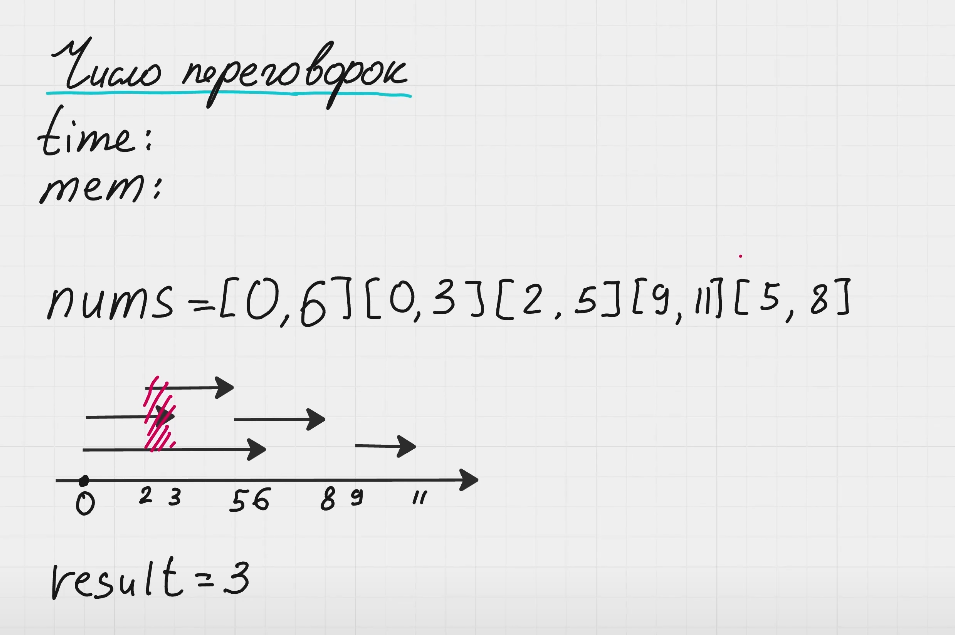 Число переговорок
time:
mem:
nums = [0,6][0,3][2,5][9,11][5,8]
0 2 3 5 6 8 9 11
result = 3